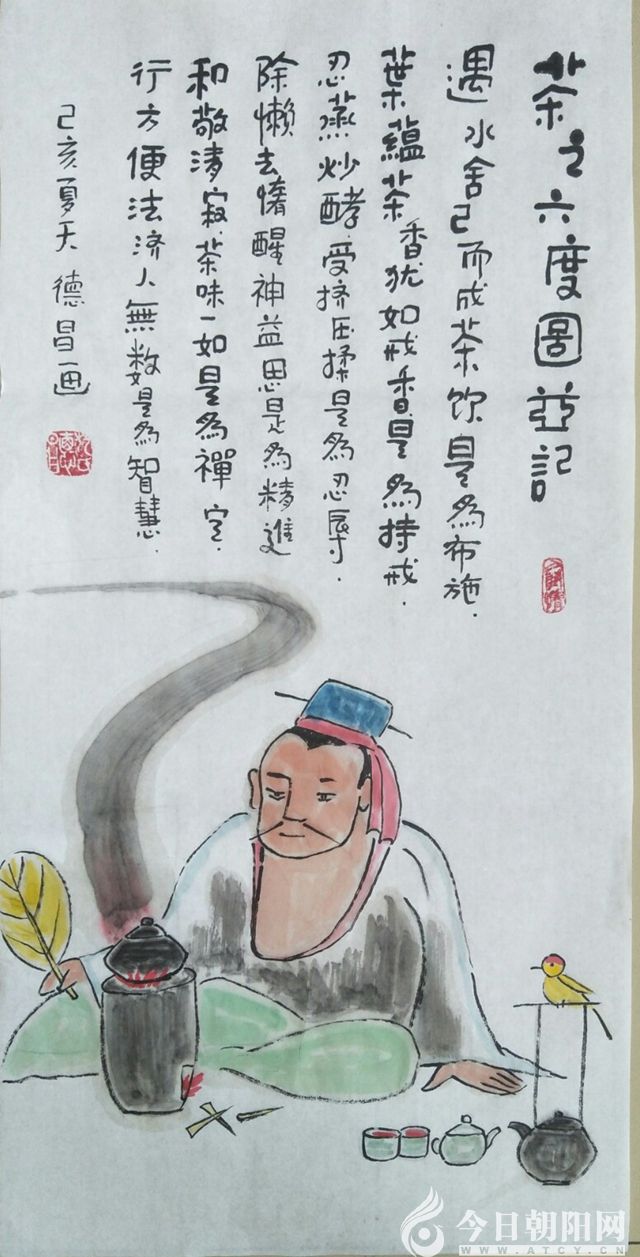 茶之六度圖並記
遇水舍己而成茶饮是為布施.
葉蘊茶香犹如戒香是為持戒.
忍蒸炒酵.受挤压揉是為忍辱.
除懒去惰醒神益思是為精進
和敬清寂.茶味一如是為禪定.
行方便法济人無数是為智慧.
己亥夏天 德昌画
今日朝阳网
WWW.ATCY.CN